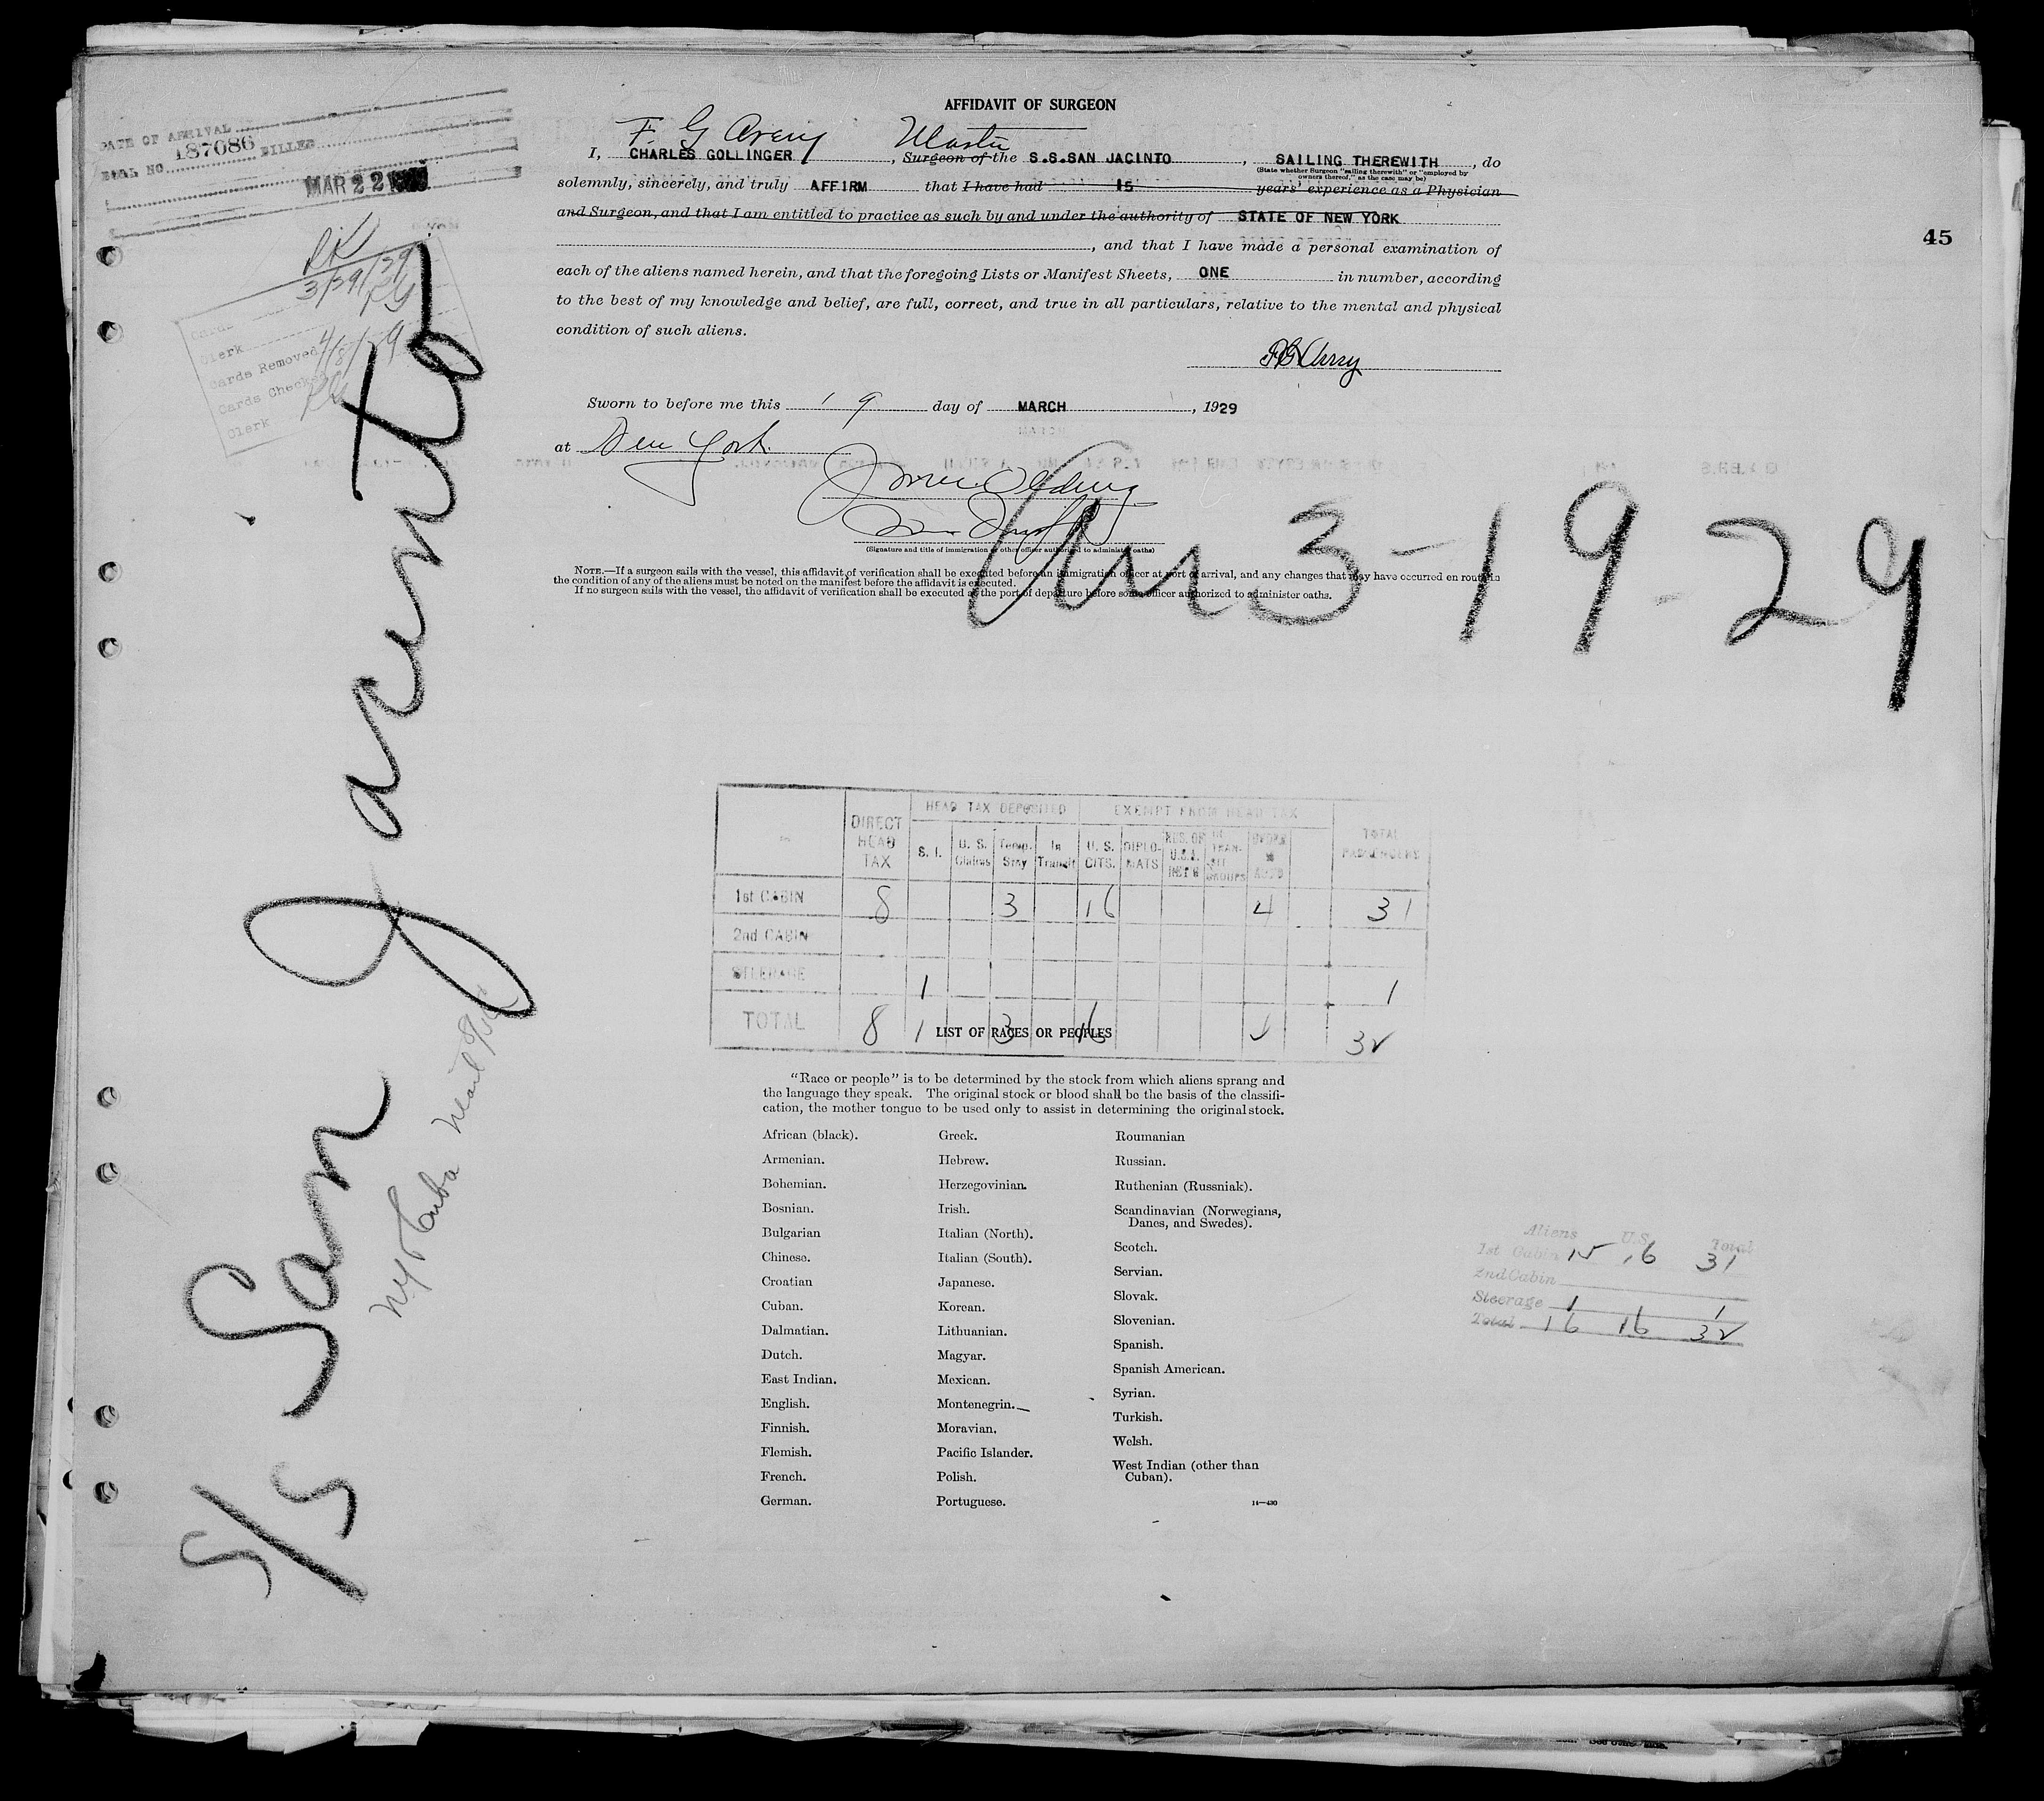 DATE OF ARRIVAL
BOAL NO. 187086 BILLED
MAR 22 1929
3/29/29
Cards
Clerk
Cards Removed 4/8/29
Cards Checked
Clerk
S/S San Jacinto
N.Y. & Cuba Mail
45
AFFIDAVIT OF SURGEON
F. G. Avery Master
I, CHARLES GOLLINGER, Surgeon of the S.S.SAN JACINTO, SAILING THEREWITH, do
(State whether Surgeon "sailing therewith" or "employed by
owners thereof," as the case may be)
solemnly, sincerely, and truly AFFIRM that I have had 15 years' experience as a Physician
and Surgeon, and that I am entitled to practice as such by and under the authority of STATE OF NEW YORK
, and that I have made a personal examination of
each of the aliens named herein, and that the foregoing Lists or Manifest Sheets, ONE in number, according
to the best of my knowledge and belief, are full, correct, and true in all particulars, relative to the mental and physical
condition of such aliens.
F G Avery
Sworn to before me this 19 day of MARCH, 1929
at New York
(Signature and title of immigration or other officer authorized to administer oaths)
3-19-29
NOTE.—If a surgeon sails with the vessel, this affidavit of verification shall be executed before an immigration officer at port of arrival, and any changes that may have occurred en route in
the condition of any of the aliens must be noted on the manifest before the affidavit is executed.
If no surgeon sails with the vessel, the affidavit of verification shall be executed at the port of departure before some officer authorized to administer oaths.
HEAD TAX DEPOSITED EXEMPT FROM HEAD TAX
DIRECT HEAD TAX S. I. U. S. Claims Temp. Stay In Transit U. S. CITS. DIPLOMATS RES. OF U.S.A. RET'G IN TRANSIT GROUPS TOTAL PASSENGERS
1st CABIN 8 3 16 4 31
2nd CABIN
STEERAGE 1 1
TOTAL 8 1 3 16 4 32
LIST OF RACES OR PEOPLES
"Race or people" is to be determined by the stock from which aliens sprang and
the language they speak. The original stock or blood shall be the basis of the classifi-
cation, the mother tongue to be used only to assist in determining the original stock.
African (black).
Armenian.
Bohemian.
Bosnian.
Bulgarian
Chinese.
Croatian
Cuban.
Dalmatian.
Dutch.
East Indian.
English.
Finnish.
Flemish.
French.
German.
Greek.
Hebrew.
Herzegovinian.
Irish.
Italian (North).
Italian (South).
Japanese.
Korean.
Lithuanian.
Magyar.
Mexican.
Montenegrin.
Moravian.
Pacific Islander.
Polish.
Portuguese.
Roumanian
Russian.
Ruthenian (Russniak).
Scandinavian (Norwegians,
Danes, and Swedes).
Scotch.
Servian.
Slovak.
Slovenian.
Spanish.
Spanish American.
Syrian.
Turkish.
Welsh.
West Indian (other than
Cuban).
14—430
Aliens U.S. Total
1st Cabin 15 16 31
2nd Cabin
Steerage 1 1
Total 16 16 32